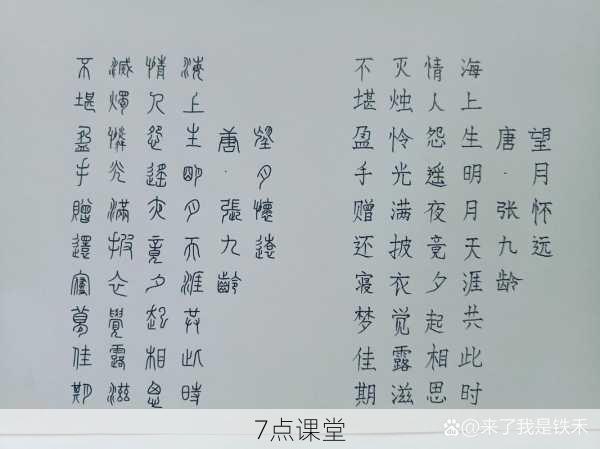 望月怀远
唐·张九龄
海上生明月天涯共此时
情人怨遥夜竟夕起相思
灭烛怜光满披衣觉露滋
不堪盈手赠还寝梦佳期
望月懷遠
唐·張九齡
海上生明月天涯共此時
情人怨遙夜竟夕起相思
滅燭憐光滿披衣覺露滋
不堪盈手贈還寢夢佳期
7点课堂
@来了我是铁禾